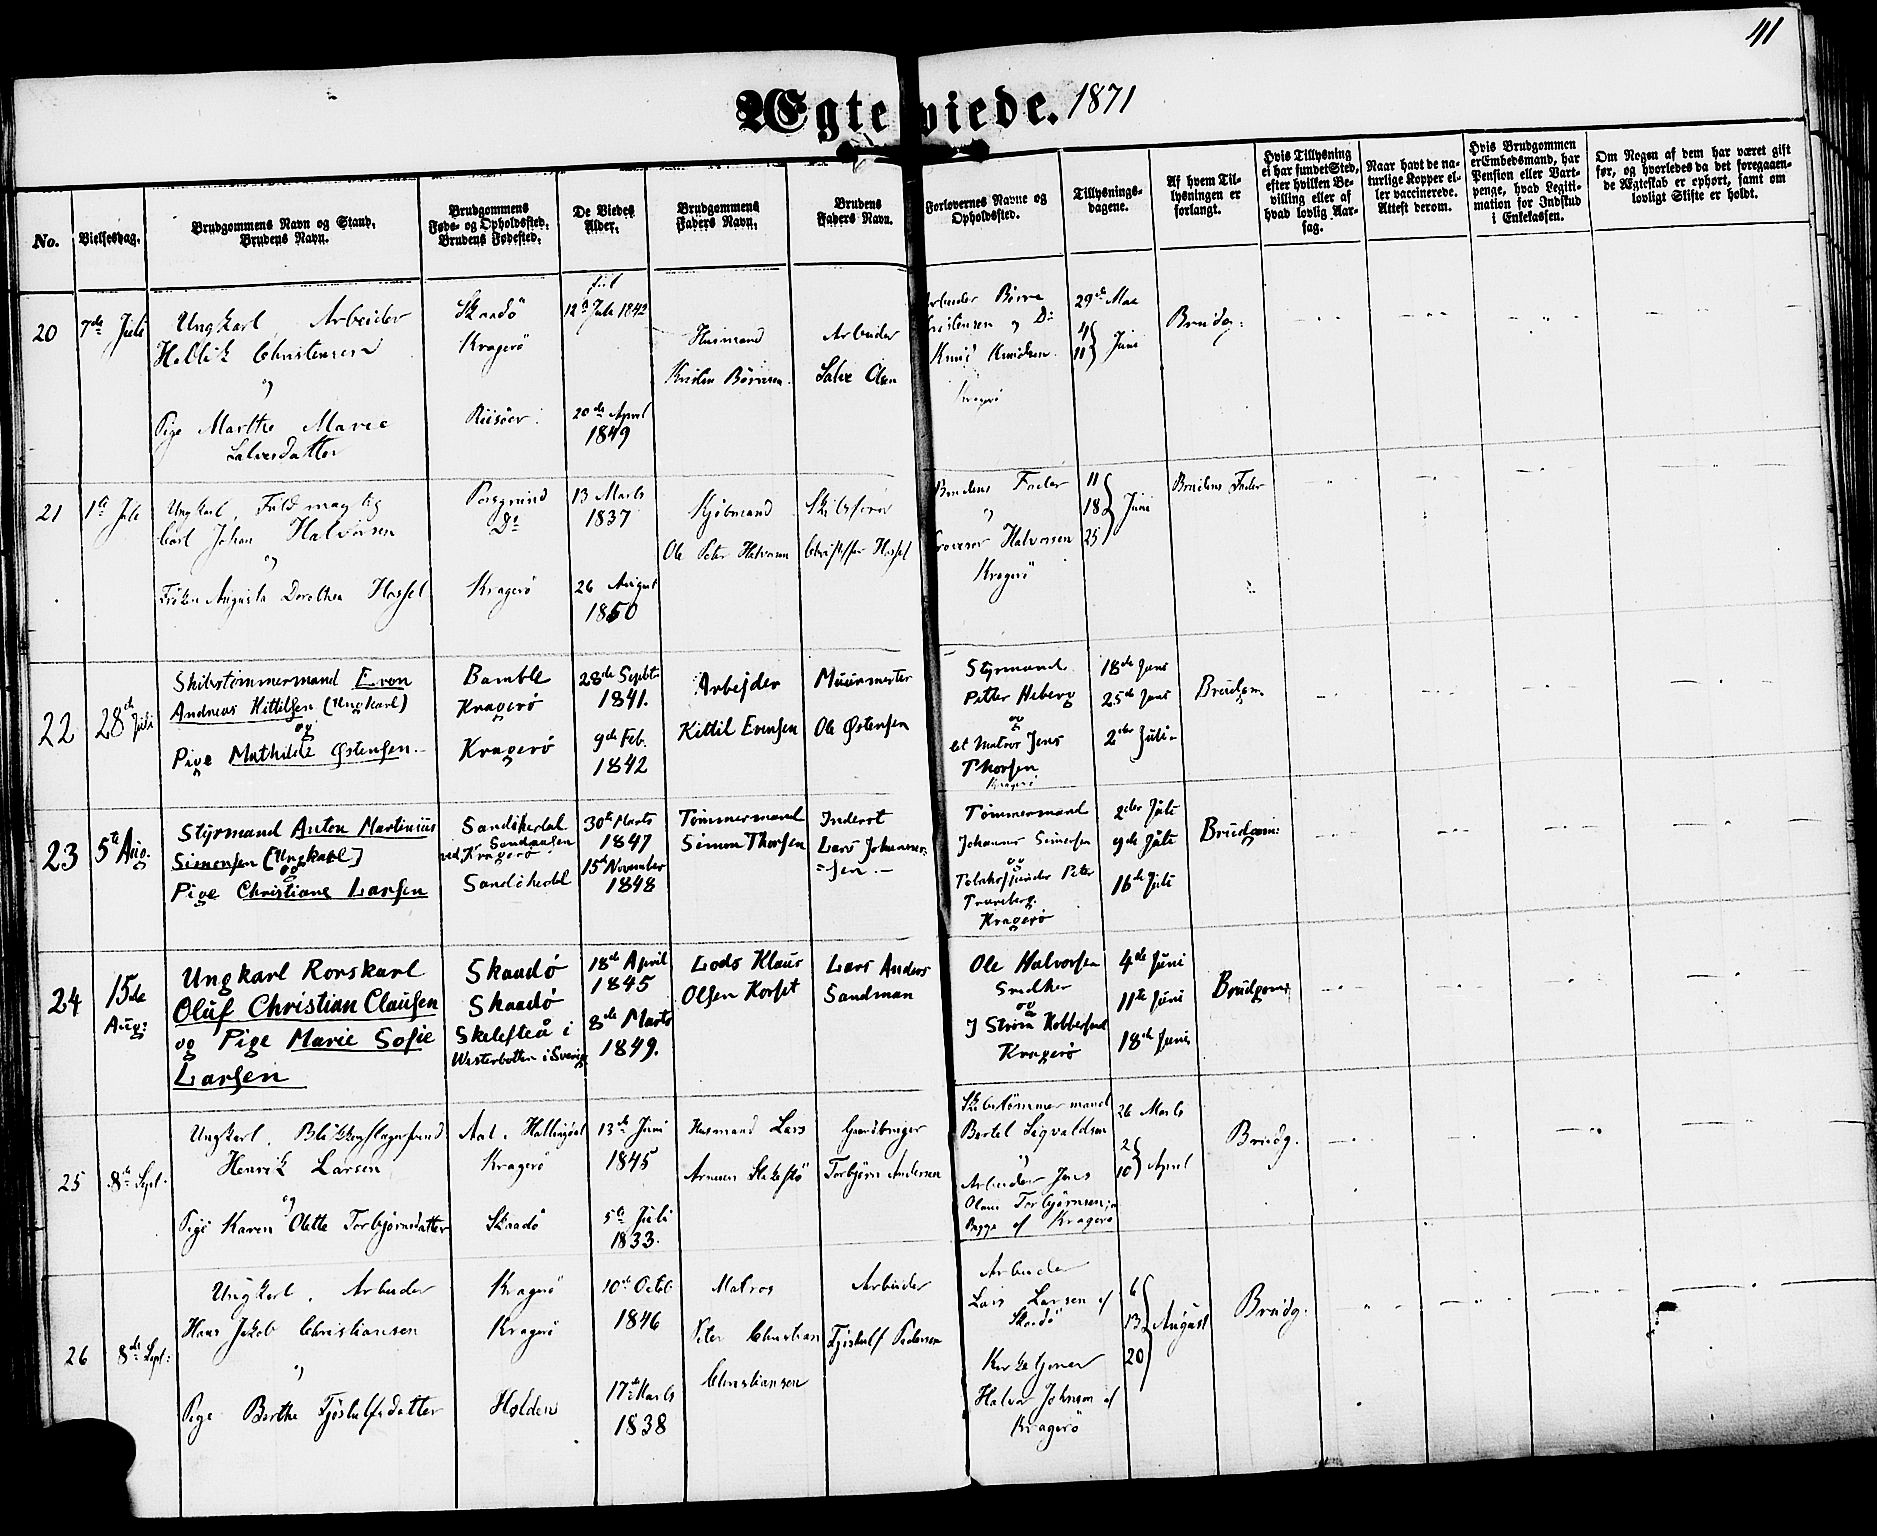 41
Ægteviede. 1871
No.
Vielsesdag.
Brudgommens Navn og Stand,
Brudens Navn.
Brudgommens
Føde- og Opholdssted,
Brudens Fødested.
De Viedes
Alder.
Brudgommens
Faders Navn.
Brudens
Faders Navn.
Forlovernes Navne og
Opholdssted.
Tillysnings-
dagene.
Af hvem Til-
lysningen er
forlangt.
Hvis Tillysning
ei har fundet Sted,
efter hvilken Be-
villing eller af
hvad lovlig Aar-
sag.
Naar havt de na-
turlige Kopper el-
ler vaccinerede.
Attest derom.
Hvis Brudgommen
er Embedsmand, har
Pension eller Vart-
penge, hvad Legiti-
mation for Indskud
i Enkekassen.
Om Nogen af dem har været gift
før, og hvorledes da det foregaaen-
de Ægteskab er ophørt, samt om
lovligt Skifte er holdt.
20
7de Juli
Ungkarl, Arbeider
Christensen
og
Pige Marthe Marie
Salvesdatter
Skaadö
Kragerö
Riisöer
12te Juli 1842
20de April
1849
Husmand
Kristen Børresen
Arbeider
Salve Olsen
Arbeider Børre
Kristensen og Do
Knud Knudsen
Kragerö
29de Mai
4
11 } Juni
Brudg:
21
1te Juli
Ungkarl, Fuldmægtig
Carl Johan Halvorsen
og
Frøken Augusta Dorothea Hassel
Porsgrund
Do
Kragerö
13 Marts
1837
26 August
1850
Kjøbmand
Ole Peter Halvorsen
Skibsfører
Christoffer Hassel
Brudens Fader
og
Halvorsen
Kragerö
11
18 } Juni
25
Brudens Fader
22
28de Juli
Skibstømmermand Even
Andreas Kittilsen (Ungkarl)
og
Pige Mathilde Østensen.
Bamble
Kragerö
Kragerö
28de Septbr
1841.
9de Feb.
1842
Arbejder
Kittil Evensen
Muurmester
Ole Østensen
Styrmand
Petter Heberg
og
Matros Jens
Thorsen
Kragerö
18de Juni
25de Juni
2den Juli
Brudgom
23
5te Aug.
Styrmand Anton Martinius
Simonsen (Ungkarl)
og
Pige Christiane Larsen
Sandökedal
ved Kragerö
Sandökedal
30te Marts
1847
15de November
1848
Tømmermand
Simon Thorsen
Inderst
Lars Johannes-
=sen.
Tømmermand
Johannes Simonsen
og
Peter
Kragerö
2den Juli
9de Juli
16de Juli
Brudgom:
24
15de
Aug:
Ungkarl Rorskarl
Oluf Christian Clausen
og Pige Marie Sofie
Larsen
Skaadö
Skaadö
Skelefteå i
Westerbotten i Sverig
18de April
1845
8de Marts
1849.
Lods Klaus
Olsen Korset
Lars Anders
Sandman
Ole Halvorsen
Snedker
og
J Strøm Kobbersmed
Kragerö
4de Juni
11te Juni
18de Juni
Brudgom:
25
8de Sept.
Ungkarl, Blikkenslagersvend
Henrik Larsen
og
Pige Karen Olette Torbjørnsdatter
Aal i Hallingdal
Kragerö
Skaadö
13de Juni
1845
5te Juli
1833.
Husmand Lars
Arnesen
Gaardbruger
Torbjørn Andersen
Skibstømmermand
Bertel Sigvaldsen
og
Arbeider Jens
Olaus Torbjørnsen,
Begge af Kragerö
26 Marts
2
10 } April
Brudg.
26
8de Sept:
Ungkarl, Arbeider
Hans Jakob Christiansen
og
Pige Berthe Fjøstulfsdatter
Kragerö
Kragerö
Holden
10de Octob
1846
17de Marts
1838
Matros
Peter Christian
Christiansen
Arbeider
Fjøstulf Pedersen
Arbeider
Lars Larsen af
Skaadö
Kirketjener
Halvor Johnsen af
Kragerö
6
13 } August
20
Brudg.